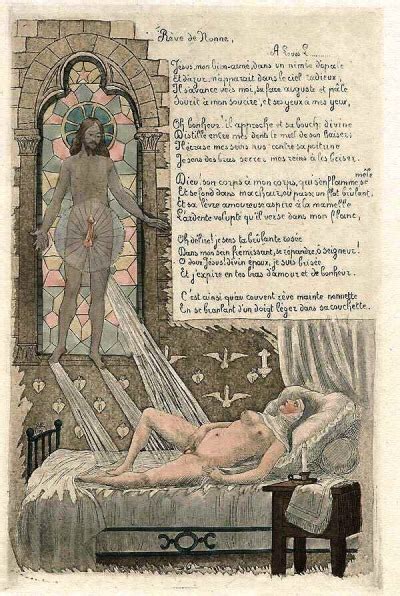 Rêve de Nonne,
A Louis L......
Jésus, mon bien-aimé, dans un nimbe d'opale
Et d'azur, m'apparaît dans le ciel radieux;
Il s'avance vers moi, sa face auguste et pâle
Sourit à mon sourire, et ses yeux à mes yeux,
Oh bonheur! il approche et sa bouche divine
Distille entre mes dents le miel de son baiser;
Il écrase mes seins nus contre sa poitrine
Je sens des bras serrer mes reins à les briser.
Dieu! son corps à mon corps, qui s'enflamme se mêle
Et se fond dans ma chair, où passe un flot brûlant,
Et sa lèvre amoureuse aspire à la mamelle
L'ardente volupté qu'il verse dans mon flanc,
Oh délire! je sens la brûlante rosée
Dans mon sein frémissant, se répandre, ô seigneur!
O doux Jésus! divin époux, je suis brisée
Et j'expire en tes bras d'amour et de bonheur.
C'est ainsi qu'au couvent rêve mainte nonnette
En se branlant d'un doigt léger dans sa couchette.